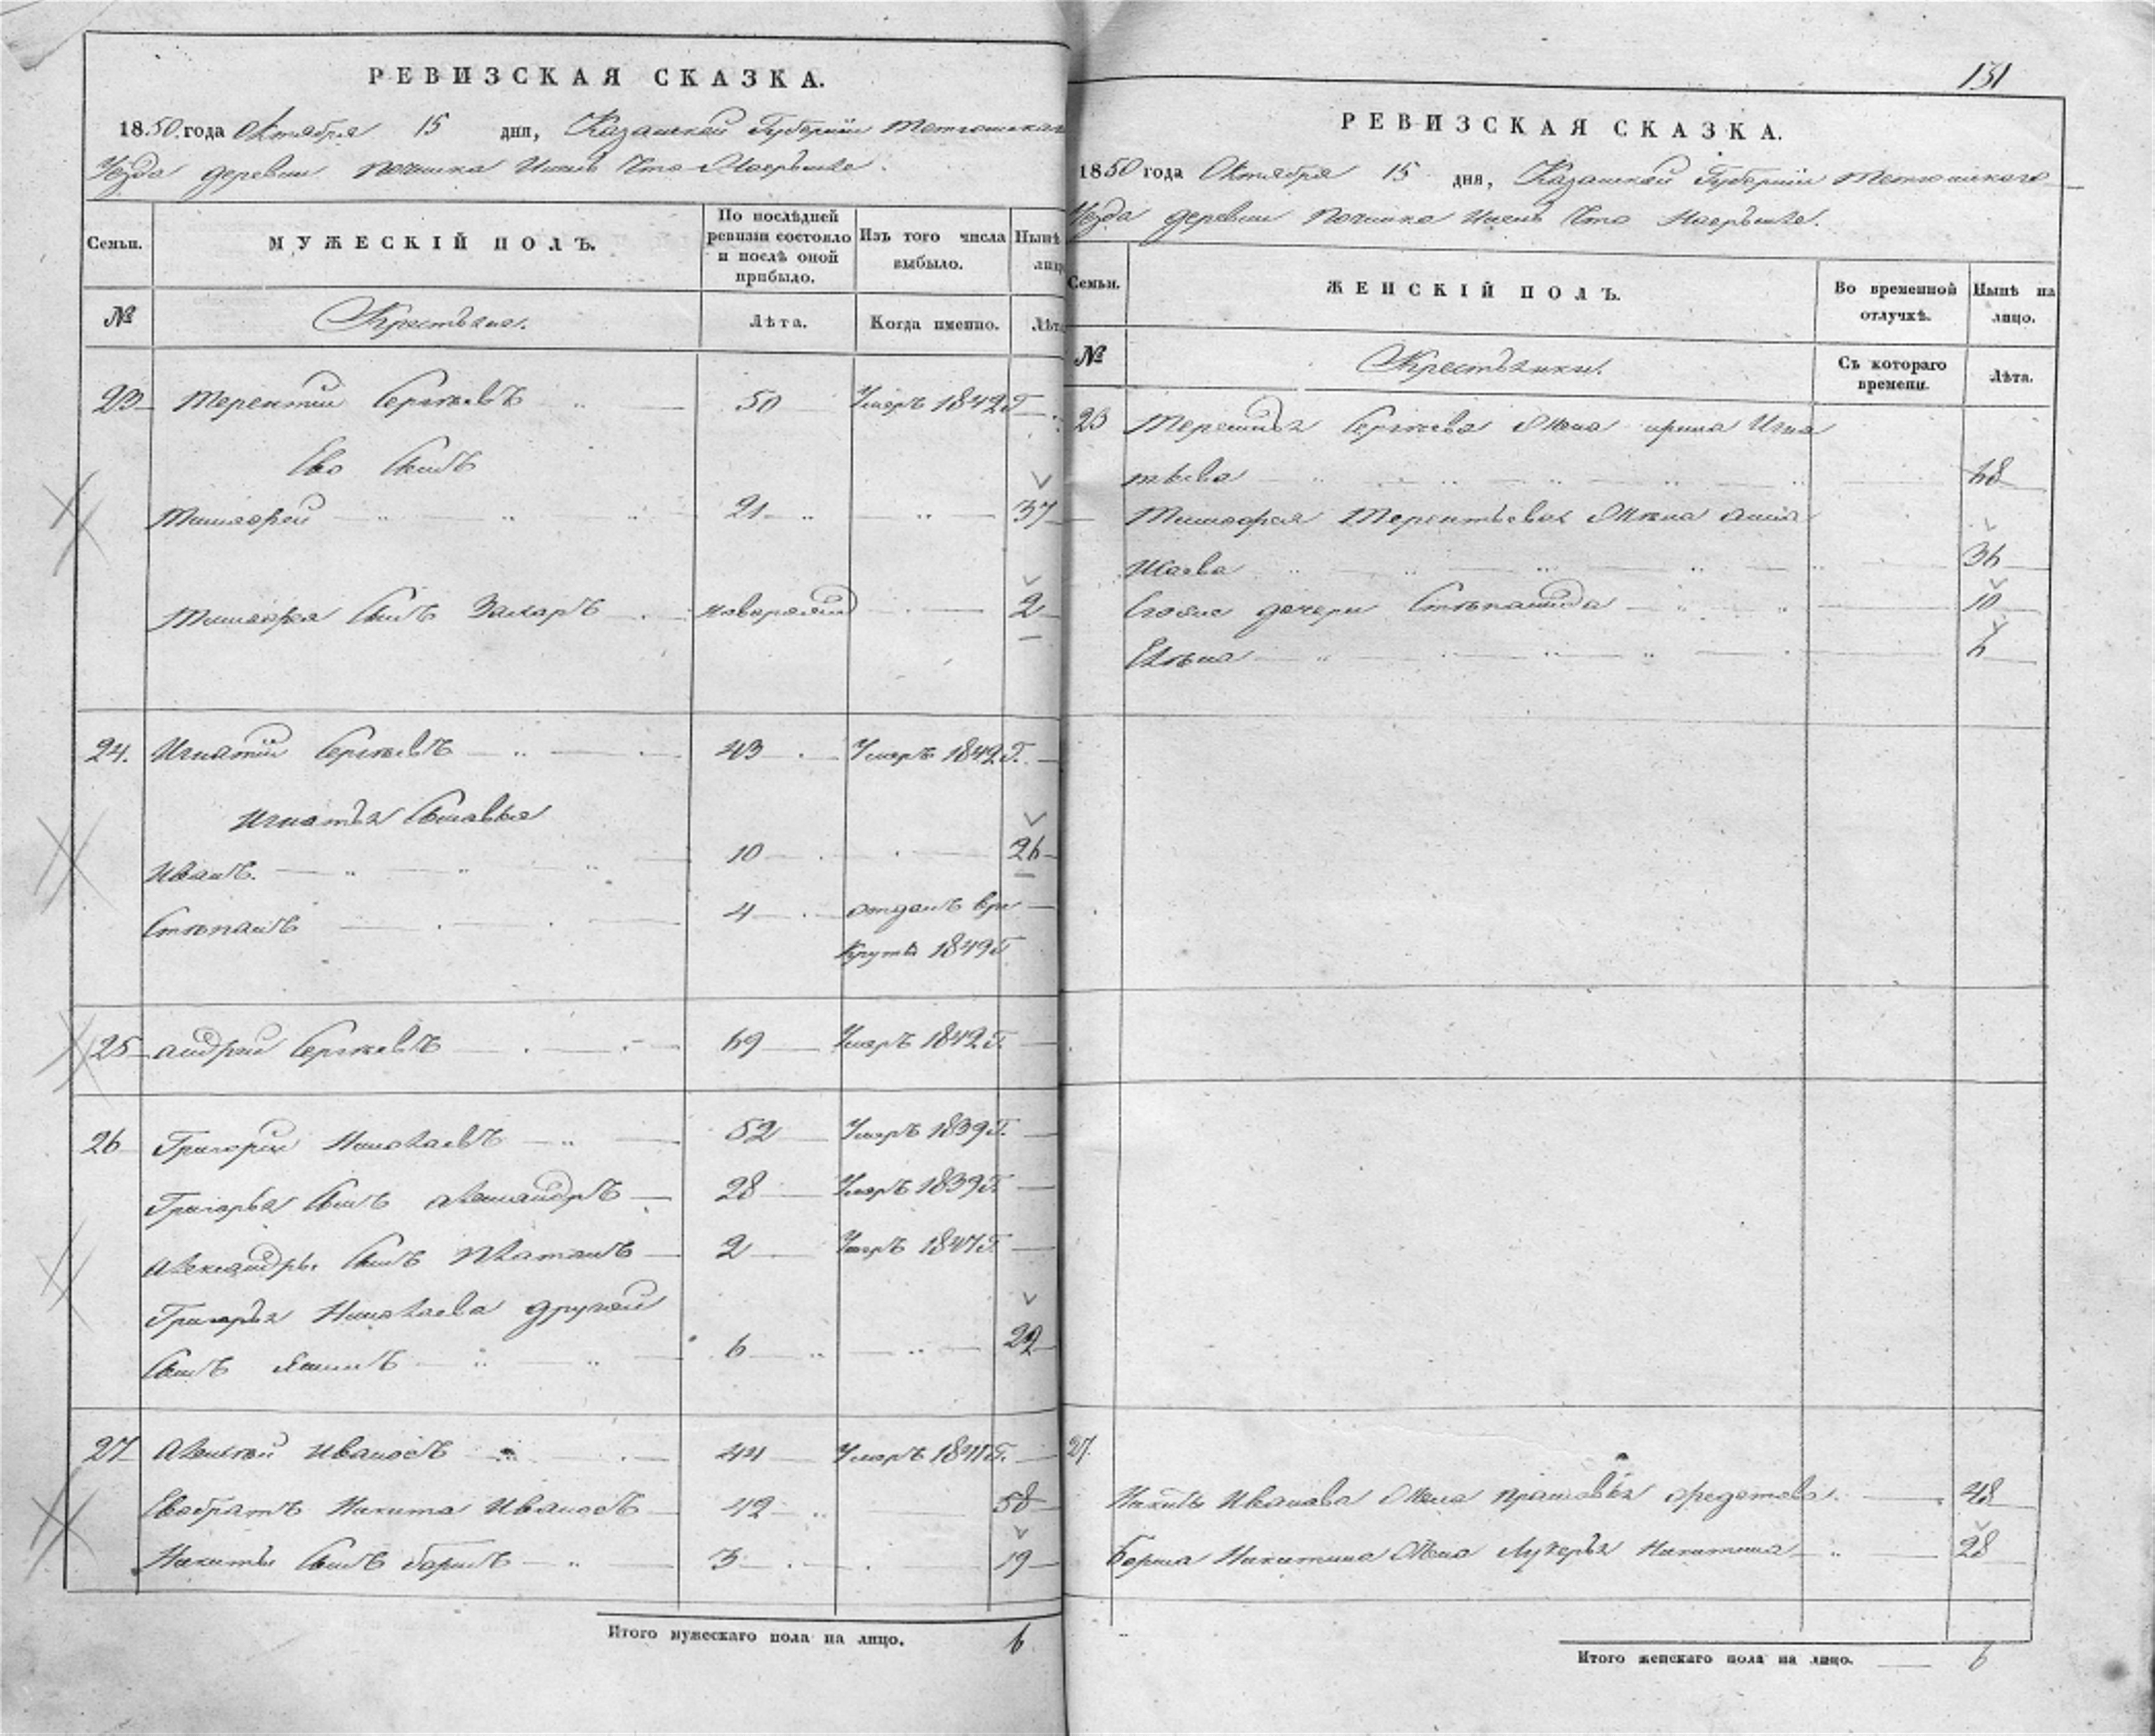 РЕВИЗСКАЯ СКАЗКА.
1850 года Октября 15 дня, Казанской Губернии Тетюшскаго
Уезда деревни Починка
Семьи. МУЖЕСКІЙ ПОЛЪ. По послѣдней ревизіи состояло и послѣ оной прибыло. Изъ того числа выбыло. Нынѣ лицо
№ Крестьяне. Лѣта. Когда именно. Лѣта
23 Терентий Сергѣевъ 50 Умеръ 1842 Г
Ево Сынъ
Тимофей 21 37
Тимофея Сынъ Захаръ 2
24. Игнатій Сергѣевъ 43 Умеръ 1849 Г.
Игнатья Сыновья
Иванъ. 10 26
Степанъ 4 отданъ врекруты 1849 Г
25 Андрей Сергѣевъ 69 Умеръ 1842 Г.
26 Григорій Николаевъ 52 Умеръ 1839 Г.
Григорья Сынъ Александръ 28 Умеръ 1839 Г.
Александры Сынъ Платонъ 2 Умеръ 1847 Г.
Григорья Николаева другой
Сынъ 6 22
27 Алексей Ивановъ 44 Умеръ Г.
Евобратъ Никита Ивановъ 42 58
Никиты Сынъ Борисъ 3 19
Итого мужескаго пола на лицо. 6
131
РЕВИЗСКАЯ СКАЗКА.
1850 года Октября 15 дня, Казанской Губернии Тетюшскаго
Уезда деревни Починка
Семьи. ЖЕНСКІЙ ПОЛЪ. Во временной отлучкѣ. Нынѣ на лицо.
№ Крестьянки. Съ котораго времени. Лѣта.
23 Терентья Сергѣева Жена ирина Игна
тьева 68
Тимофея Терентьева Жена анна
36
дочери Степанида 10
Елена 6
27.
Никиты Иванова Жена прасковья 48
Бориса Никитина Жена Лукерья Никитина 28
Итого женскаго пола на лицо. 6